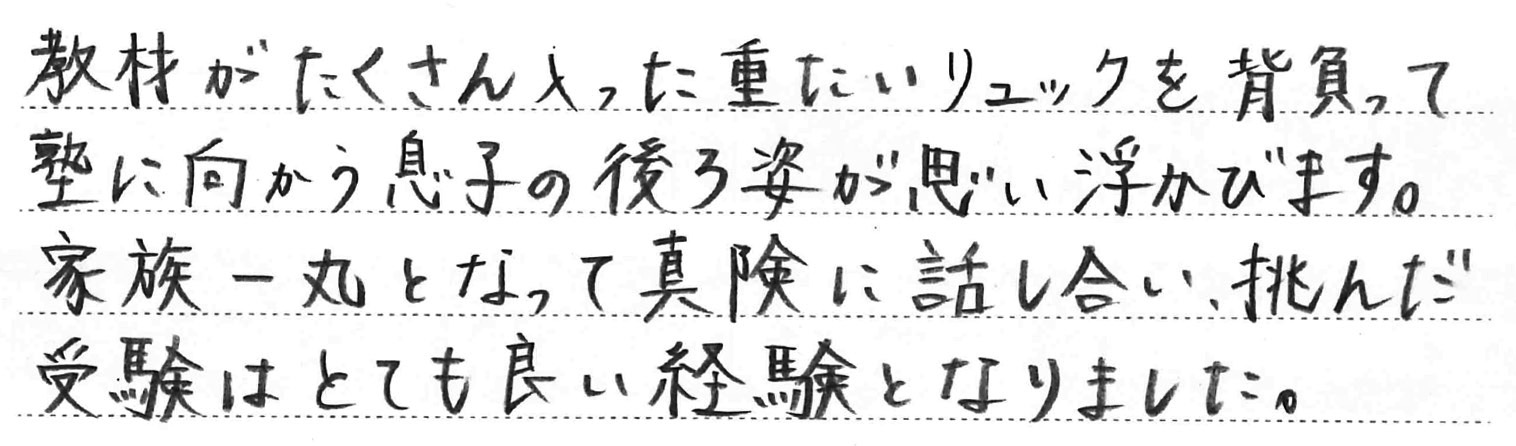 教材がたくさん入った重たいリュックを背負って
塾に向かう息子の後ろ姿が思い浮かびます。
家族一丸となって真険に話し合い、挑んだ
受験はとても良い経験となりました。